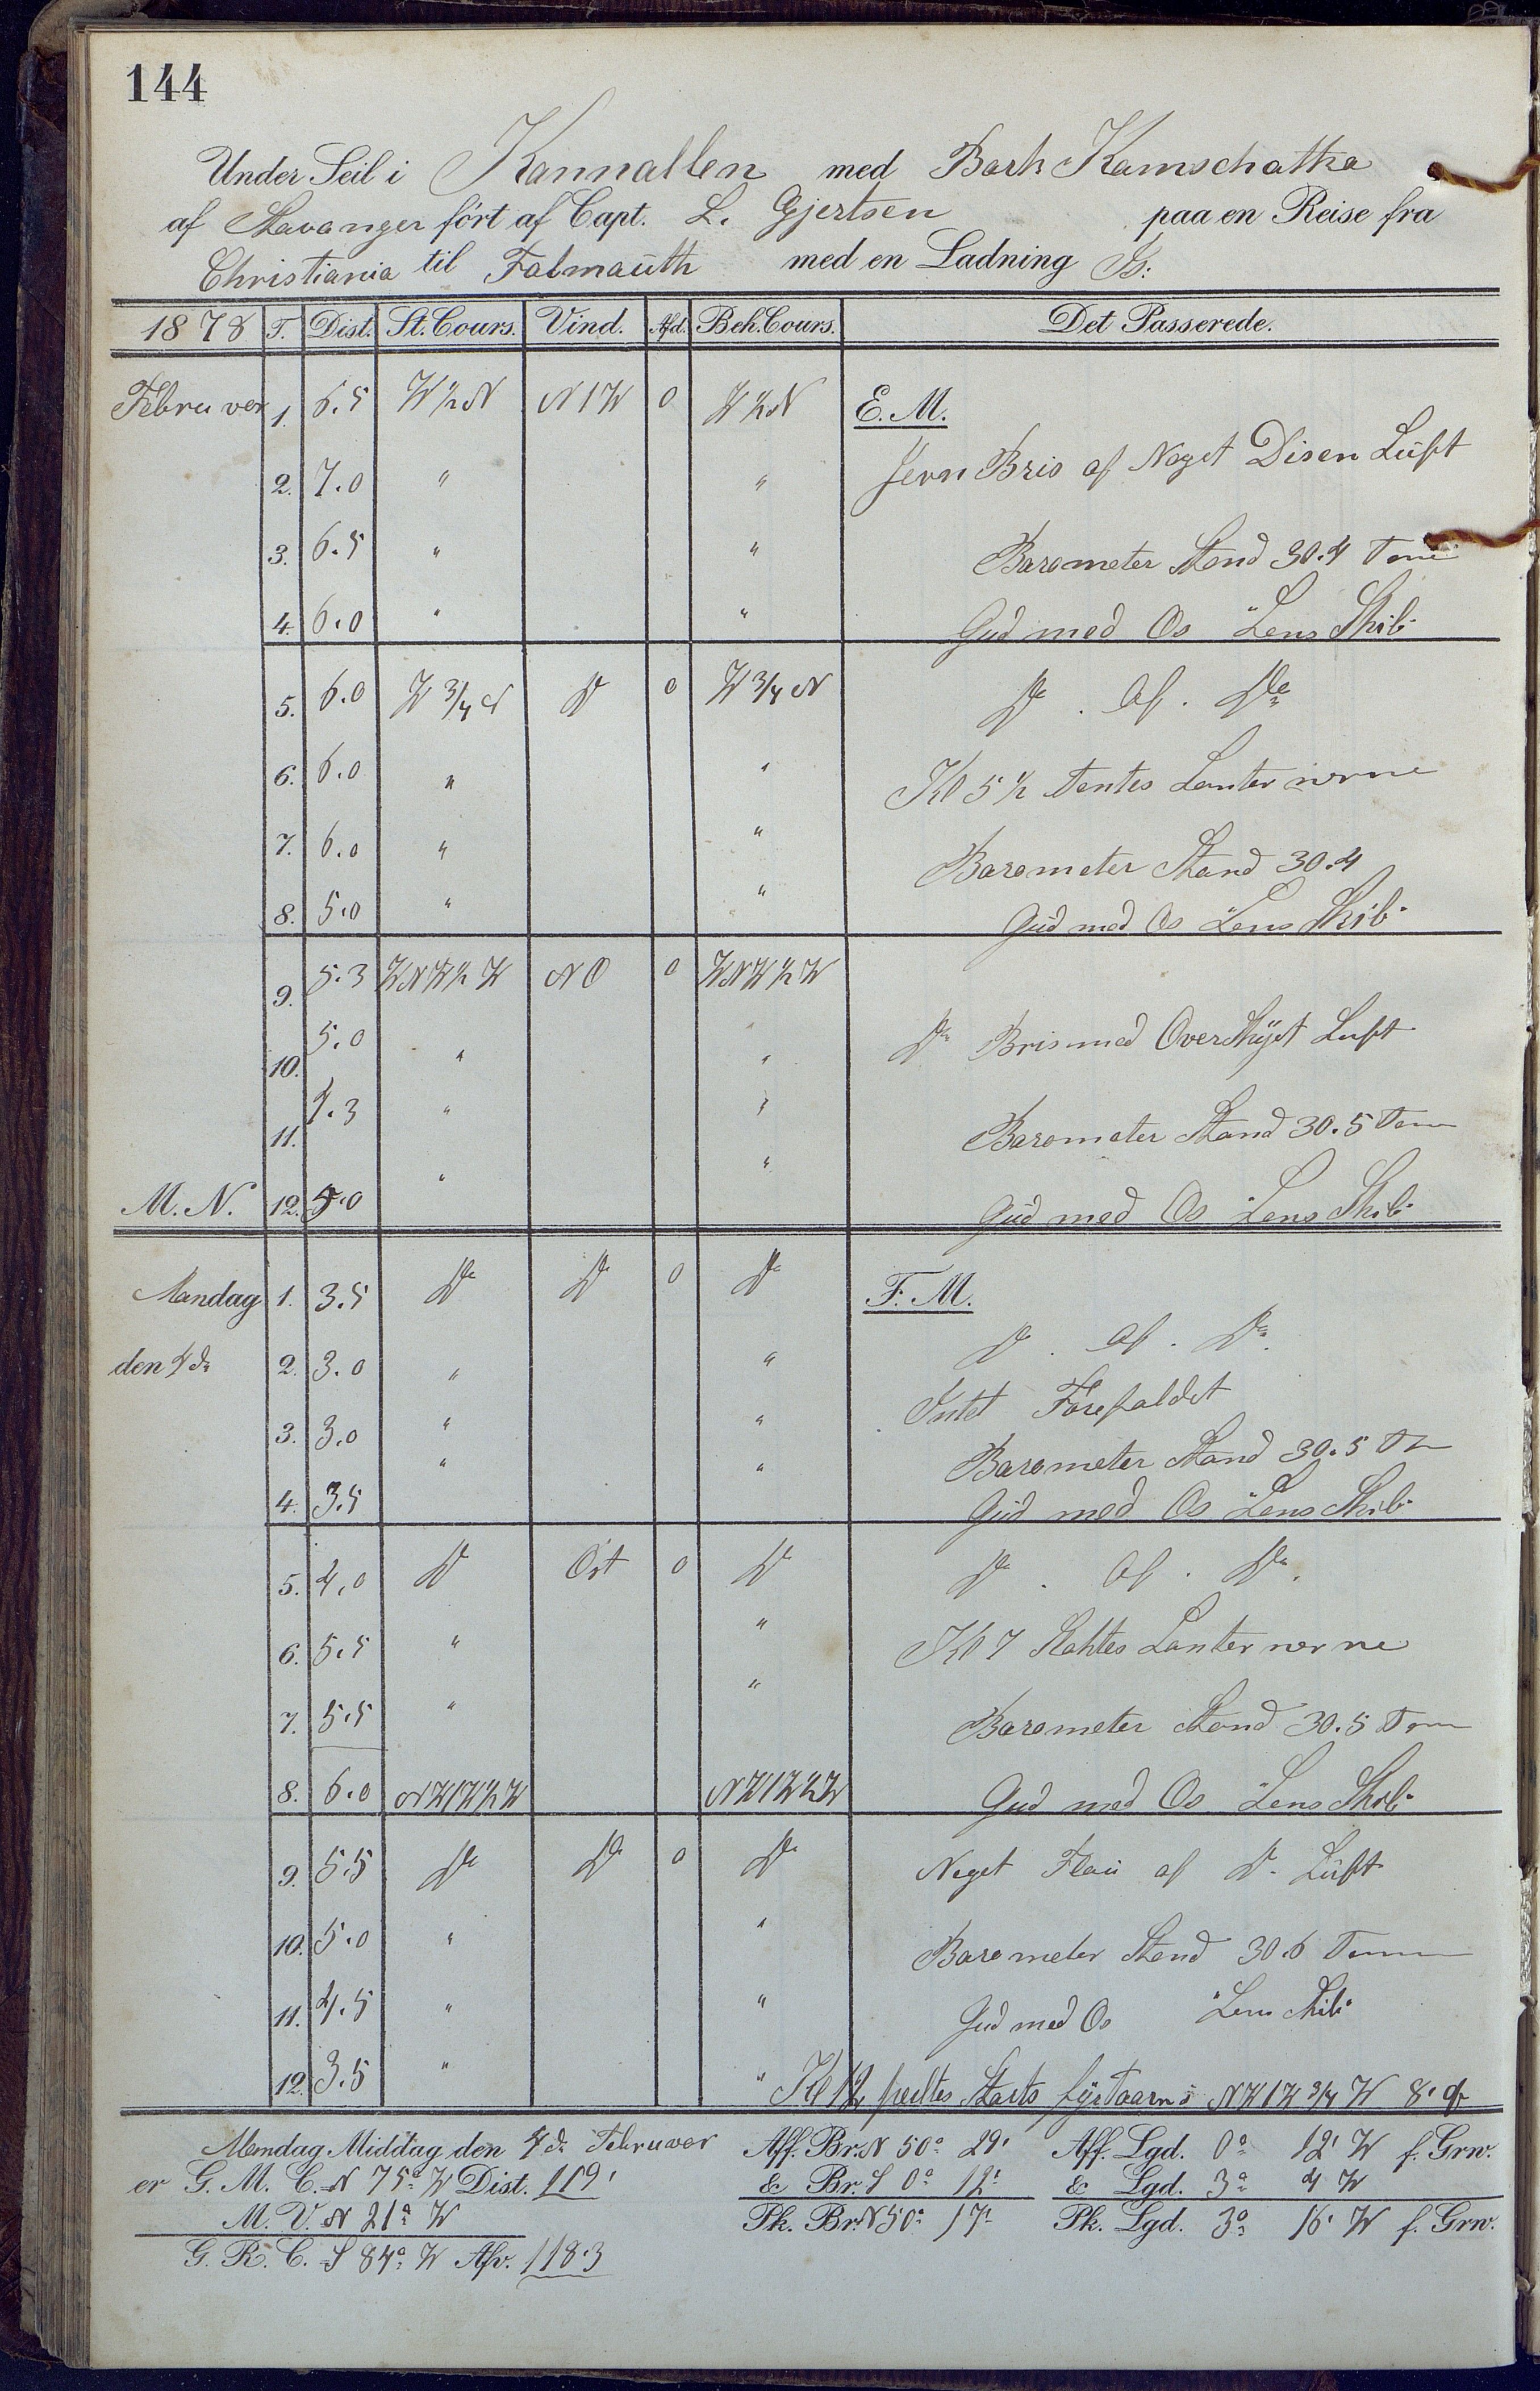 144
Under Seil i Kannallen med Bark Kamschatka
af Stavanger ført af Capt. L. Gjertsen paa en Reise fra
Christiania til Falmauth med en Ladning Is:
1878 T. Dist. St. Cours. Vind. Afd. Beh. Cours. Det Passerede.
Februvar 1. 6.5 W ½ N N 1 W 0 W ½ N E. M.
2. 7.0 " " Jevn Bris af Noget Disen Luft
3. 6.5 " " Barometer Stand 30.4 Tom
4. 6.0 " " Gud med Os Lens Skib
5. 6.0 W ¾ N Do 0 W ¾ N Do . af . Do
6. 6.0 " " Kl 5 ½ tentes Lanternerne
7. 6.0 " " Barometer Stand 30.4
8. 5.0 " " Gud med Os Lens Skib
9. 5.3 WNW ½ W N O 0 WNW ½ W
10. 5.0 " " Do Bris med OverSkyet Luft
11. 4.3 " " Barometer Stand 30.5 Tom
M. N. 12. 4.0 " " Gud med Os Lens Skib
Mandag 1. 3.5 Do Do 0 Do F. M.
den 4de 2. 3.0 " " Do . af . Do
3. 3.0 " " Intet Forefaldet
Barometer Stand 30.5 Tom
4. 3.5 " " Gud med Os Lens Skib
5. 4.0 Do Ost 0 Do Do . af . Do.
6. 5.5 " " Kl 7 Slaktes Lanternerne
7. 5.5 " " Barometer Stand 30.5 Tom
8. 6.0 NW1W ½ W NW1W ½ W Gud med Os Lens Skib
9. 5.5 Do Do 0 Do Noget Flau af Do Luft
10. 5.0 " " Barometer Stand 30.6 Tomm
11. 4.5 " " Gud med Os Lens Skib
12. 3.5 " " Kl 12 peiltes Starts fyrTaarn i NW1W ¾ W 8'
Mandag Middag den 4de Februvar Aff. Br. N 50° 29' Aff. Lgd. 0° 12' W f. Grw.
er G. M. C. N 75° W Dist. 119' & Br. S 0° 12' & Lgd. 3° 4 W
M. V. N 21° W Pk. Br. N 50° 17' Pk. Lgd. 3° 16' W f. Grw.
G. R. C. S 84° W Afv. 118.3